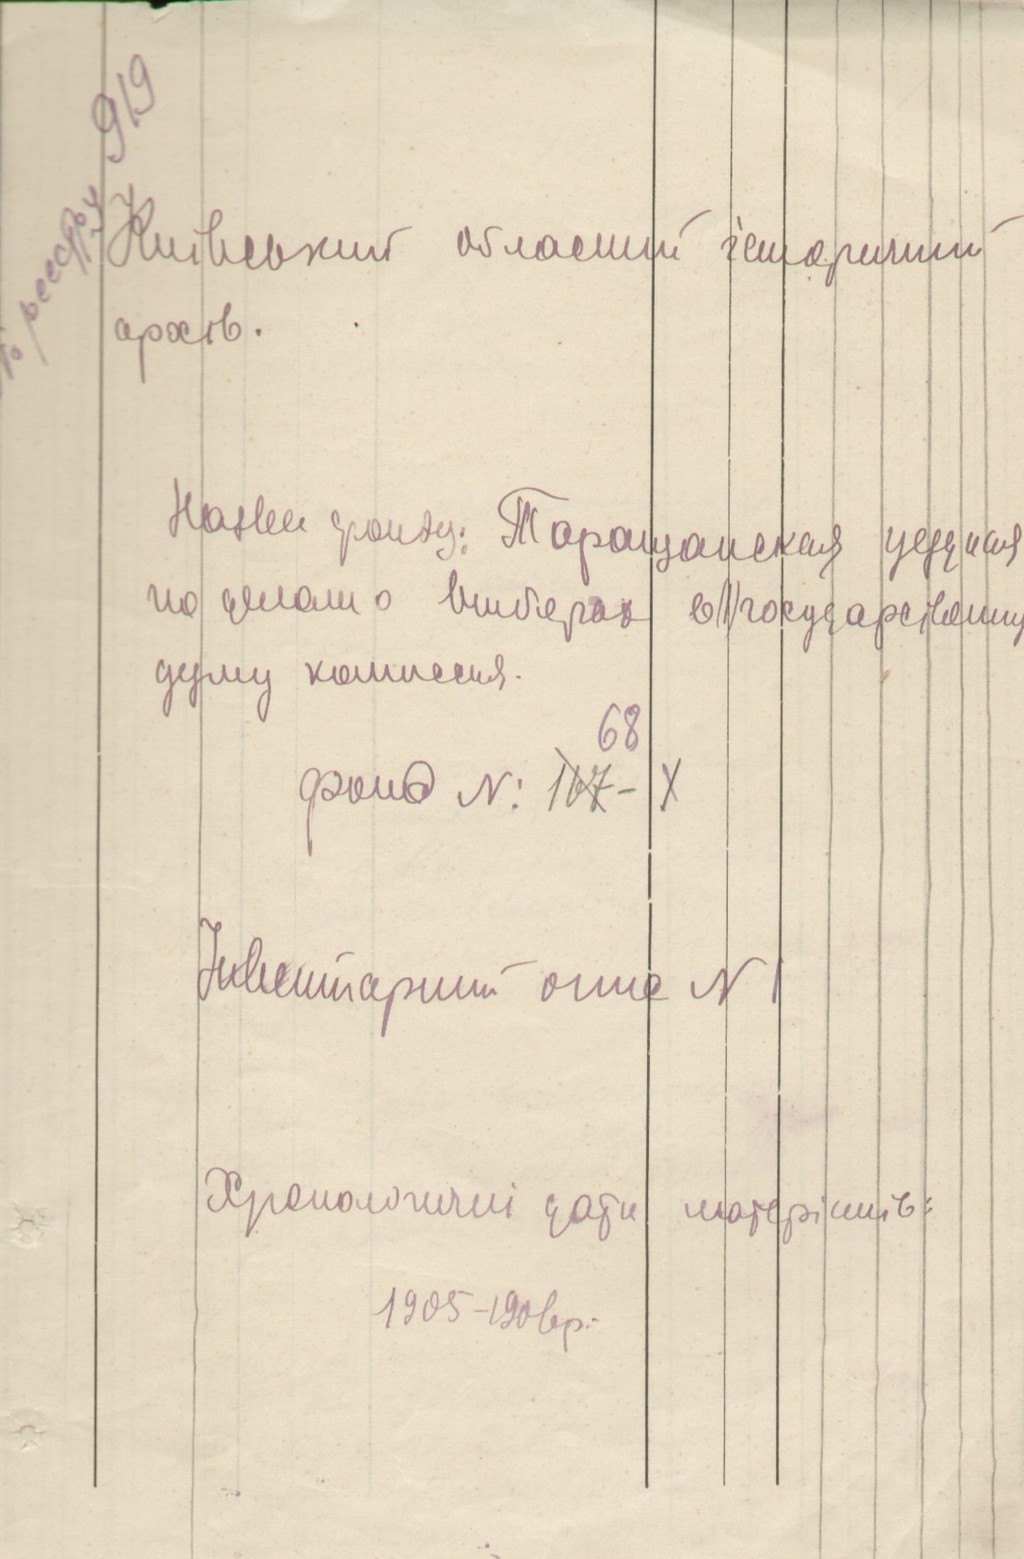 по реестру 919
Київський обласний історичний
архів.
Назва фонду: Таращанская уездная
по делам о выборах в государственну
думу комиссия.
68
фонд N: 167 - Х
Інвентарний опис N 1
Хронологичні дати матеріялів:
1905-1906 р.